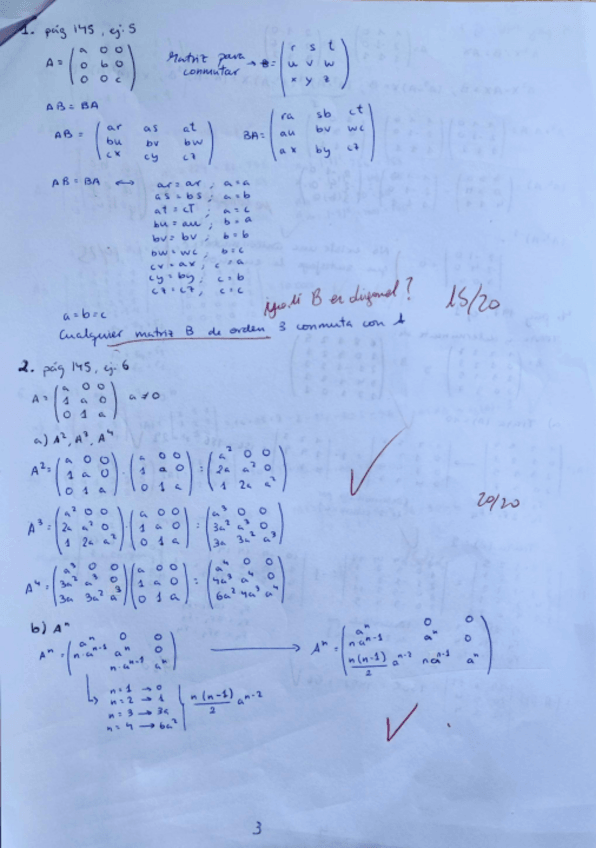 1. pág 145, ej. 5
A = (a 0 0 / 0 b 0 / 0 0 c) Matriz para conmutar → B = (r s t / u v w / x y z)
AB = BA
AB = (ar as at / bu bv bw / cx cy cz) BA = (ra sb ct / au bv wc / ax by cz)
AB = BA ⟺ ar = ar ; a = a
as = bs ; a = b
at = ct ; a = c
bu = au ; b = a
bv = bv ; b = b
bw = wc ; b = c
cx = ax ; c = a
cy = by ; c = b
cz = cz ; c = c
B es diagonal? 15/20
a = b = c
Cualquier matriz B de orden 3 conmuta con A
2. pág 145, ej. 6
A = (a 0 0 / 1 a 0 / 0 1 a) a ≠ 0
a) A², A³, A⁴
A² = (a 0 0 / 1 a 0 / 0 1 a) · (a 0 0 / 1 a 0 / 0 1 a) = (a² 0 0 / 2a a² 0 / 1 2a a²)
20/20
A³ = (a² 0 0 / 2a a² 0 / 1 2a a²) (a 0 0 / 1 a 0 / 0 1 a) = (a³ 0 0 / 3a² a³ 0 / 3a 3a² a³)
A⁴ = (a³ 0 0 / 3a² a³ 0 / 3a 3a² a³) (a 0 0 / 1 a 0 / 0 1 a) = (a⁴ 0 0 / 4a³ a⁴ 0 / 6a² 4a³ a⁴)
b) Aⁿ
Aⁿ = (aⁿ 0 0 / n·aⁿ⁻¹ aⁿ 0 / n·aⁿ⁻¹ aⁿ) → Aⁿ = (aⁿ 0 0 / naⁿ⁻¹ aⁿ 0 / n(n-1)/2 aⁿ⁻² naⁿ⁻¹ aⁿ)
n = 1 → 0
n = 2 → 1
n = 3 → 3a
n = 4 → 6a²
n(n-1)/2 aⁿ⁻²
3